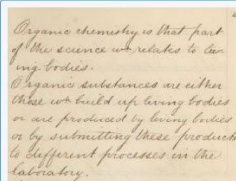 Organic chemistry is that part
of the science wh relates to liv-
ing bodies.
Organic substances are either
those wh build up living bodies
or are produced by living bodies
or by submitting these products
to different processes in the
laboratory.